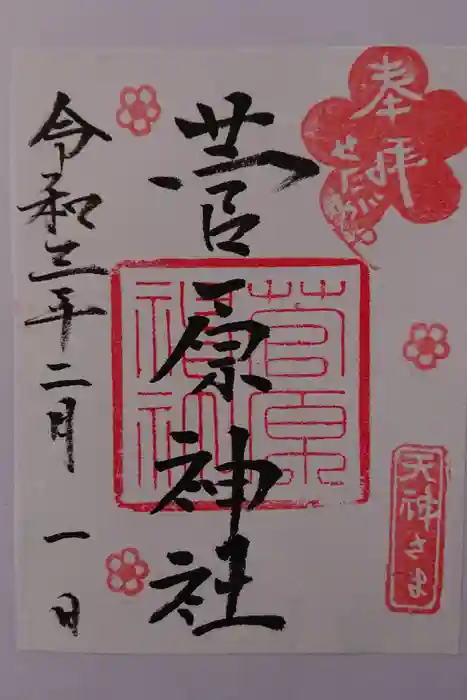 奉拝
天神さま
菅原神社
菅原
神社
令和三年二月一日